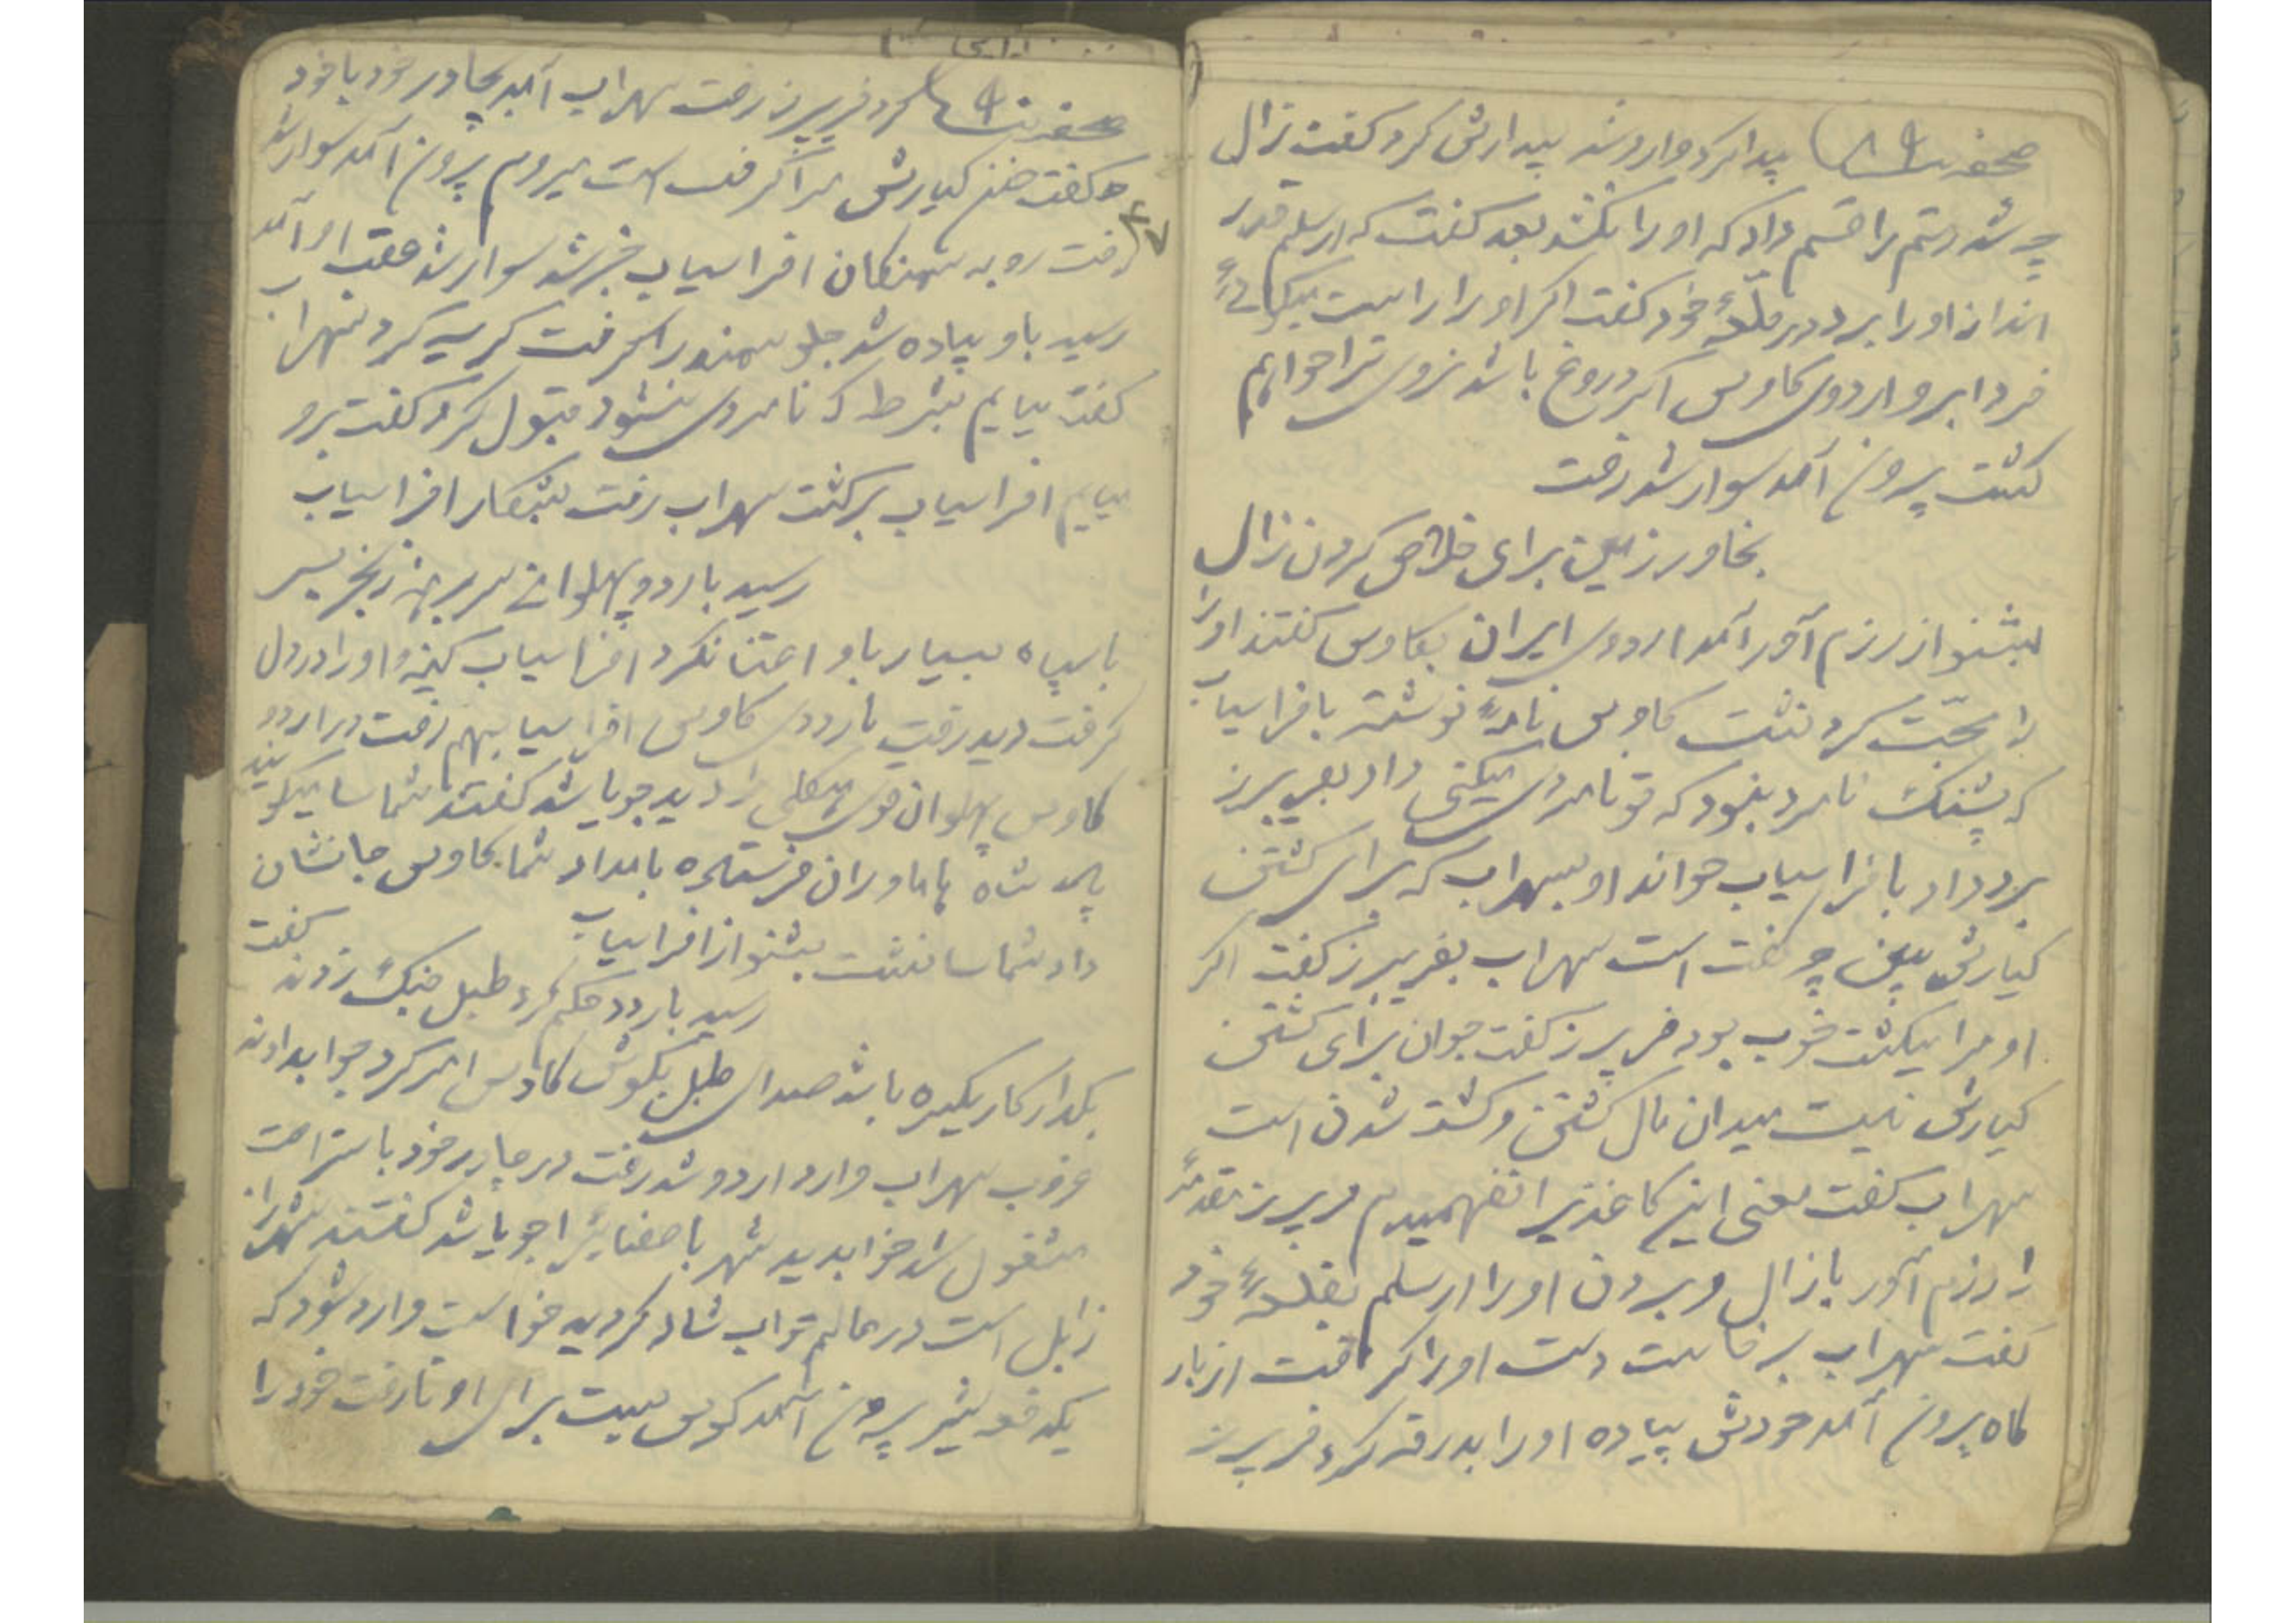 صحفه پیدا کرد وارد شد بیدارش کرد گفت زال
چه شد رستم را قسم داد که او را نکشد بعد گفت که ارسلم قدر
انداز او را برد در قلعهٔ خود گفت اگر او را راست میگوئی
فردا برو اردوی کاوس اگر دروغ باشد نروی ترا خواهم
کشت بیرون آمد سوار شد رفت
بخاور زمین برای خلاص کردن زال
بشنو از رزم آور آمد اردوی ایران بکاوس گفتند او را
را محبت کرد نشست کاوس نامهٔ نوشته بافراسیاب
که پشنگ نامرد نبود که تو نامردی میکنی داد بفریبرز
برد داد بافراسیاب خواند او بسهراب که برای کشتن
کیارش ببین چه گفته است سهراب بفریبرز گفت اگر
او مرا میکشت خوب بود فریبرز گفت جوان برای کشتن
کیارش نیست میدان مال کشتن و کشته شدن است
سهراب گفت معنی این کاغذ را نفهمیدم فریبرز مقدمهٔ
را رزم آور با زال و بردن او را ارسلم بقلعهٔ خود
گفت سهراب برخاست دست او را گرفت از بار
گاه بیرون آمد خودش پیاده او را بدرقه کرد فریبرز
صحفه کرد فریبرز رفت سهراب آمد بچادر خود با خود
گفت خون کیارش مرا گرفته است میروم بیرون آمد سوار شد
۴۷
رفت رو به سمنگان افراسیاب خبر شد سوار شد عقب او آمد
رسید باو پیاده شد جلو سمند را گرفت گریه کرد سهراب
گفت میایم بشرط که نامردی نشود قبول کرد گفت برو
میایم افراسیاب برگشت سهراب رفت بشکار افراسیاب
رسید باردو پهلوانی سر برهنه زنجیر بسر
با سپاه بسیار باو اعتنا نکرد افراسیاب کینه او را در دل
گرفت دید رفت باردوی کاوس افراسیاب هم رفت در اردو
کاوس پهلوان قوی هیکلی را دید جویا شد گفتند شماسا میگویند
پسر شاه هاماوران فرستاده بامداد شما کاوس جا نشان
داد شماسا نشست بشنو از افراسیاب
رسید باردو حکم کرد طبل جنگ زدند گفت
بگذار کار یکسره باشد صدای طبل بگوش کاوس امر کرد جواب دادند
غروب سهراب وارد اردو شد رفت در چادر خود باستراحت
مشغول شد خواب دید شهر با صفائی را جویا شد گفتند شهر
زابل است در عالم خواب شاد گردید خواست وارد شود که
یکدفعه شیر بیرون آمد کوس بست برای او تا رفت خود را